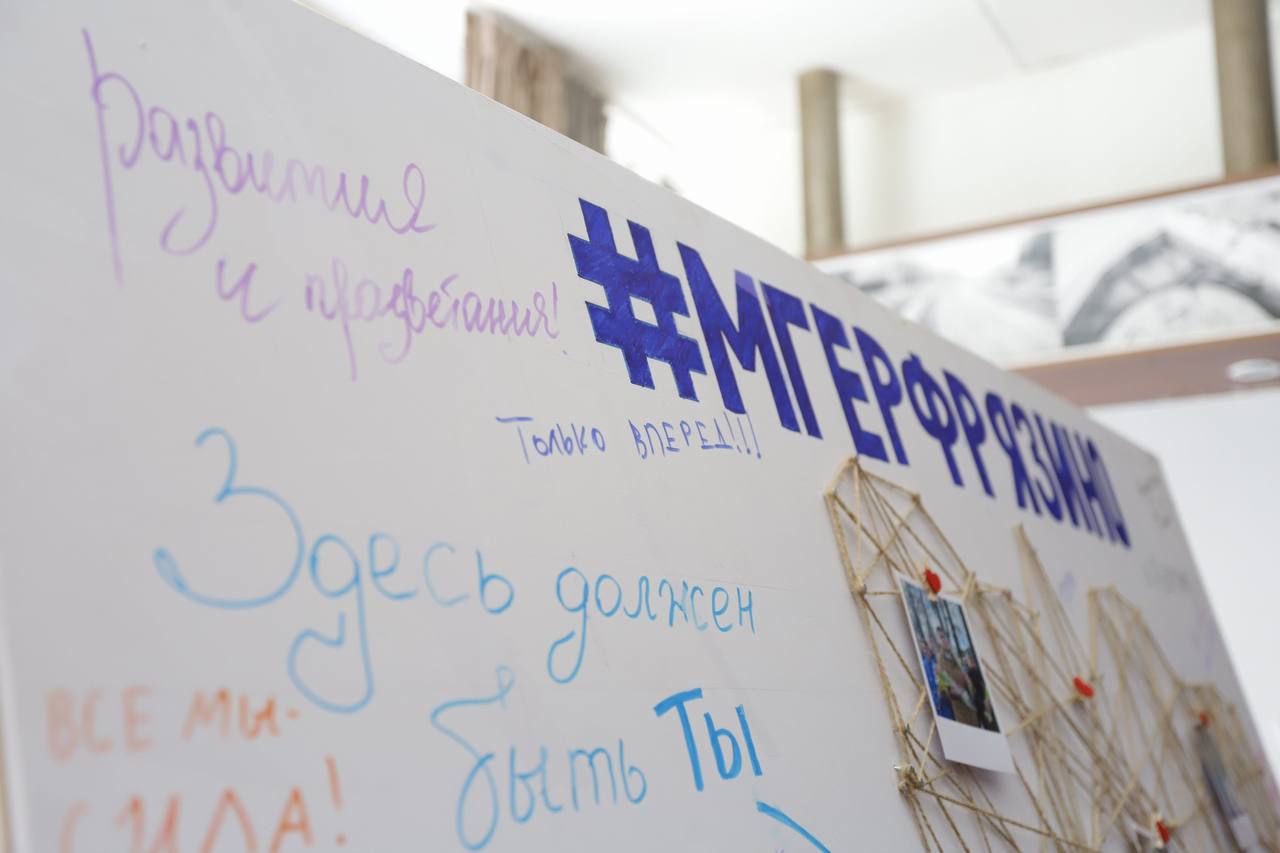 развития
и процветания!
#МГЕРФРЯЗИНО
Только ВПЕРЕД!!!
Здесь должен
быть ТЫ
ВСЕ МЫ-
СИЛА!